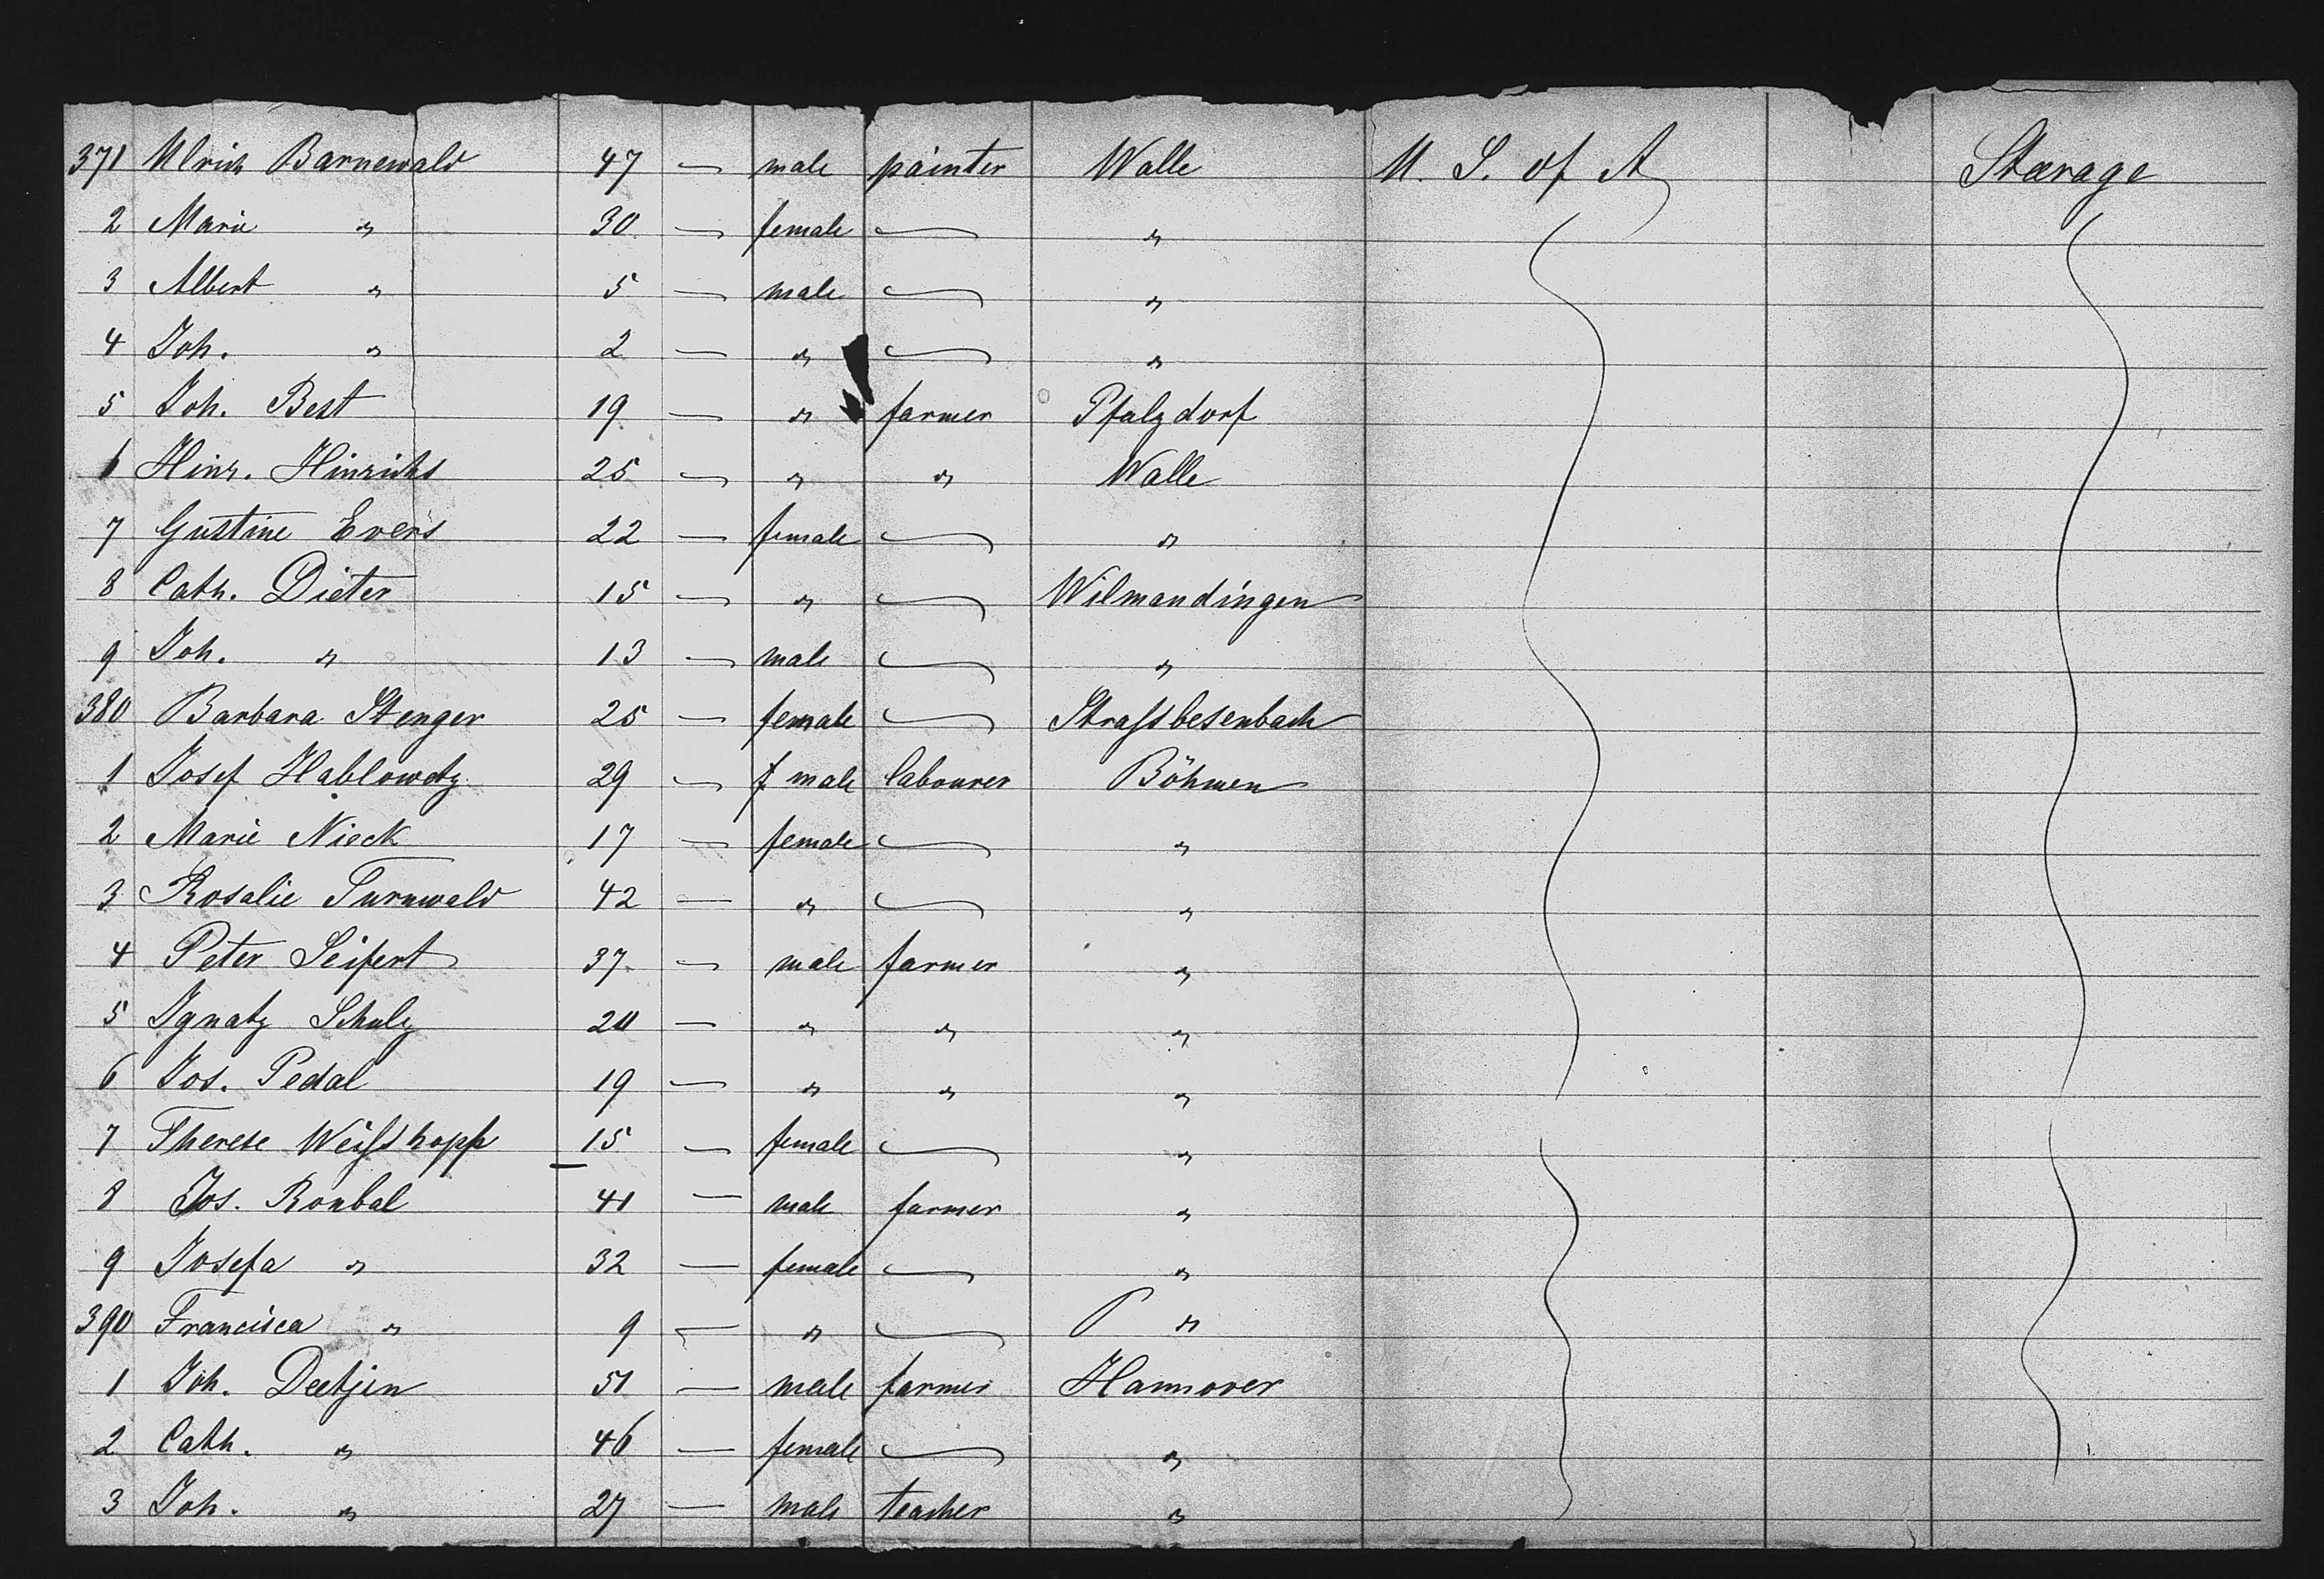 371 Ulrich Barnewald 47 — male painter Walle U. S. of A Stærage
2 Marie " 30 — female — "
3 Albert " 5 — male — "
4 Joh. " 2 — " — "
5 Joh. Best 19 — " farmer Pfalzdorf
6 Hinr. Hinrichs 25 — " " Walle
7 Gustine Evers 22 — female — "
8 Cath. Dieter 15 — " — Wilmandingen
9 Joh. " 13 — male — "
380 Barbara Stenger 25 — female — Strassbesenbach
1 Josef Hablowetz 29 — f male labourer Böhmen
2 Marie Nieck 17 — female — "
3 Rosalie Turnwald 42 — " — "
4 Peter Seifert 37 — male farmer "
5 Ignatz Schulz 20 — " " "
6 Jos. Pedal 19 — " " "
7 Therese Weisshopp 15 — female — "
8 Jos. Roubal 41 — male farmer "
9 Josefa " 32 — female — "
390 Francisca " 9 — " — "
1 Joh. Deetjen 51 — male farmer Hannover
2 Cath. " 46 — female — "
3 Joh. " 27 — male teacher "